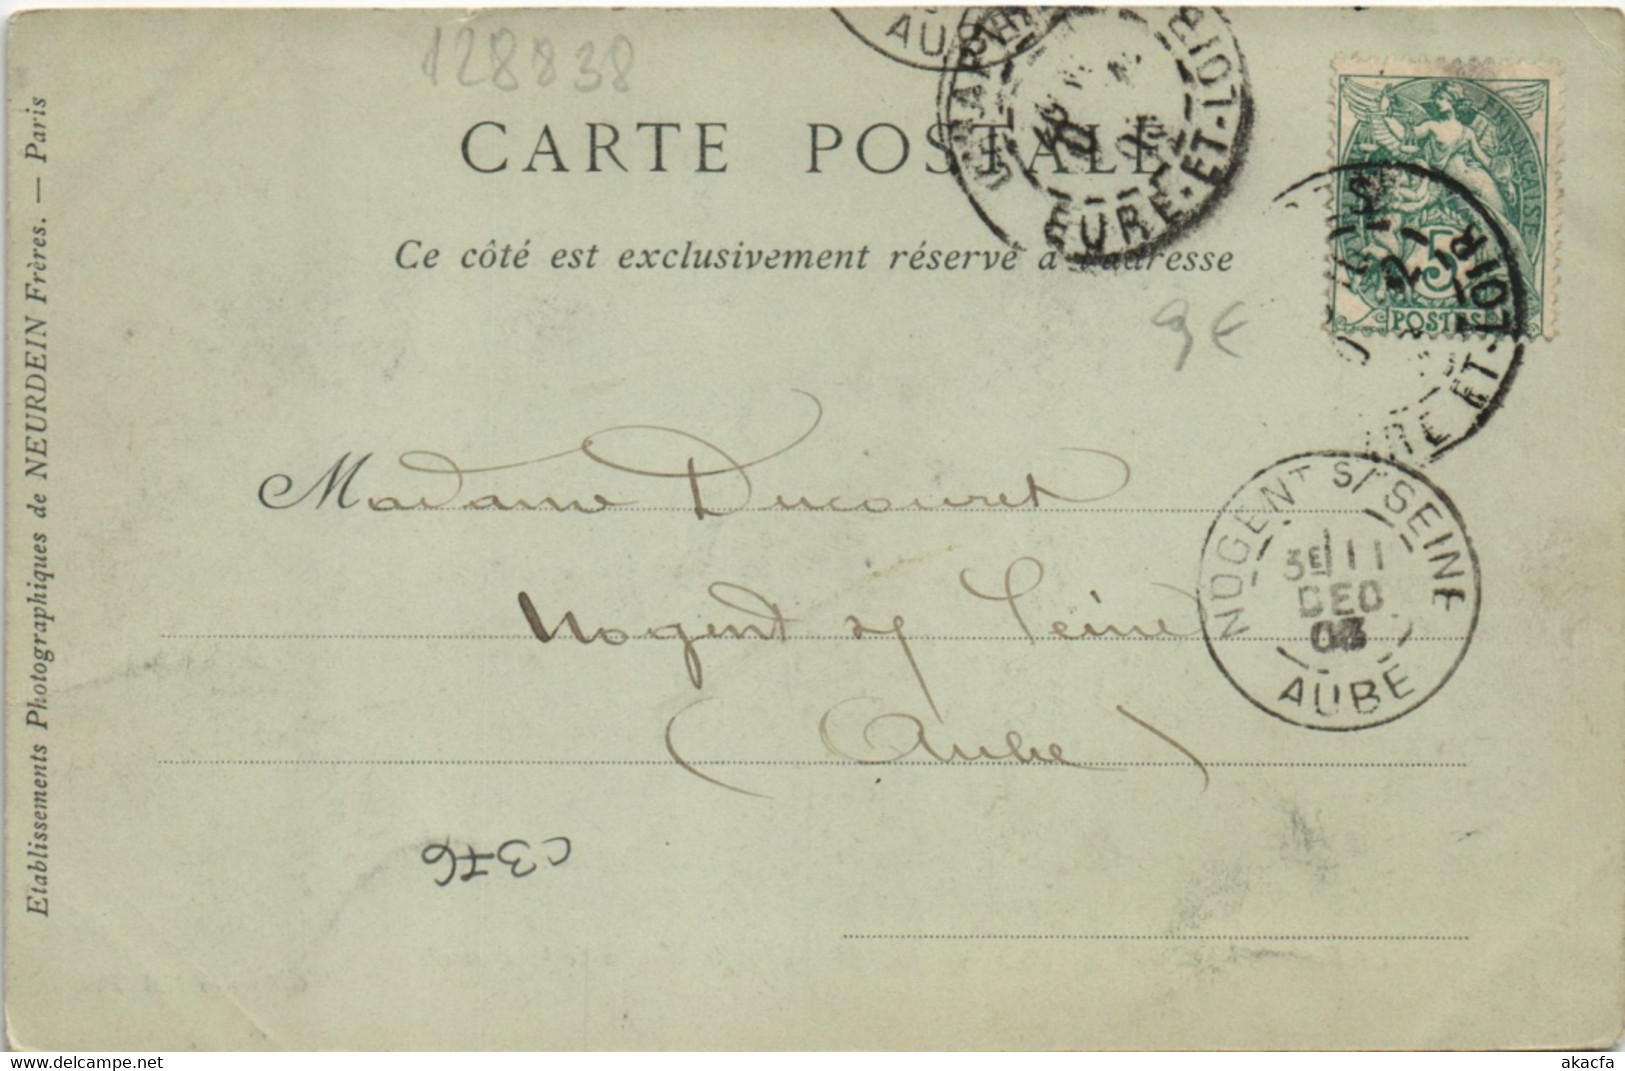 128838
AUBE
CHARTRES
EURE-ET-LOIR
CARTE POSTALE
Ce côté est exclusivement réservé à l'adresse
FRANÇAISE
5
POSTES
ET-LOIR
9 €
Madame Ducouret
Nogent s/ Seine
(Aube)
NOGENT S/ SEINE
3E/11
DEC
03
AUBE
C376
Etablissements Photographiques de NEURDEIN Frères. — Paris
akacfa